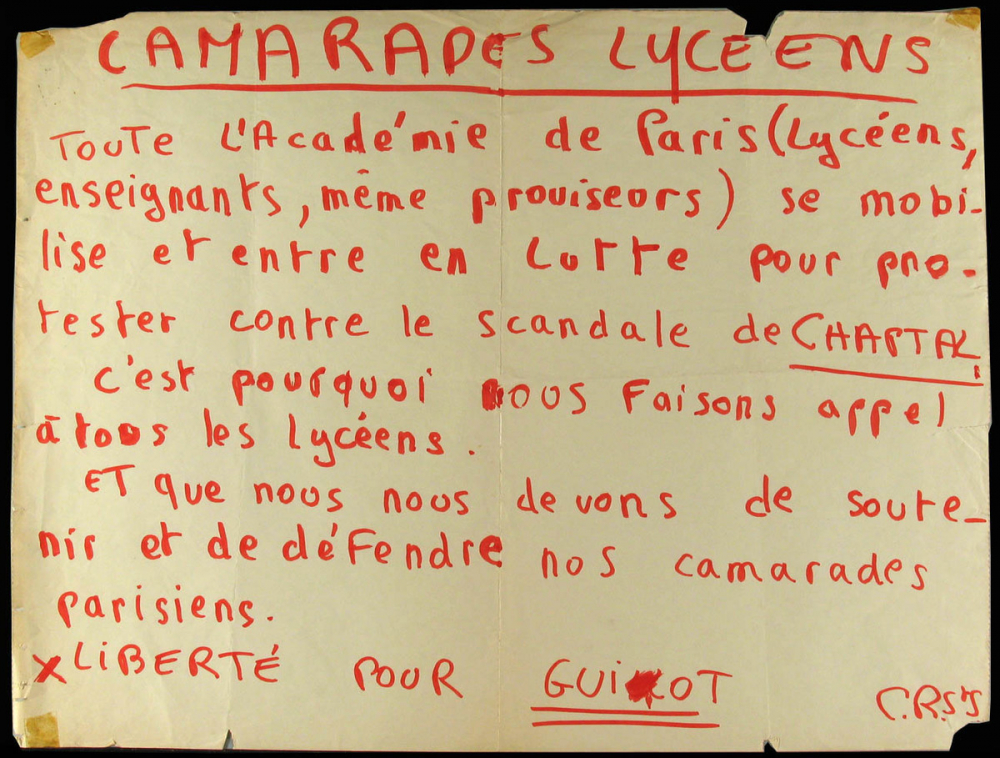 CAMARADES LYCEENS
TOUTE L'Académie de Paris (Lycéens,
enseignants, même proviseors) se mobi-
lise et entre en Lutte pour pro-
tester contre le scandale de CHAPTAL
c'est pourquoi nous Faisons appel
à tous les Lycéens.
ET que nous nous devons de soute-
nir et de déFendre nos camarades
parisiens.
x LiBERTÉ POUR GUIOT